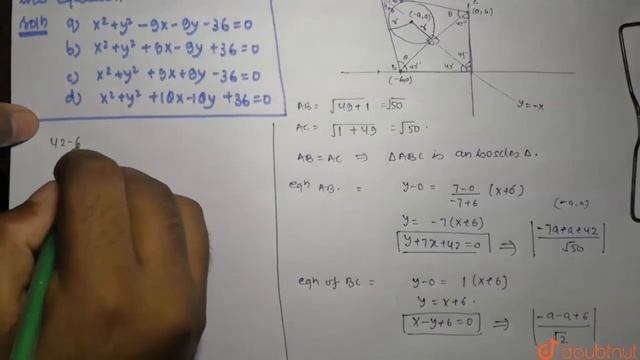 Soln
a) x²+y²-9x-9y-36=0
b) x²+y²+9x-9y+36=0
c) x²+y²+9x+9y-36=0
d) x²+y²+18x-18y+36=0
42-6
(-a,a)
r
r
B
(0,6)
45°
45°
45°
45°
(-6,0)
y=-x
AB = √49+1 = √50
AC = √1+49 = √50.
AB=AC ⇒ ΔABC is an isosceles Δ.
eqn AB. = y-0 = 7-0/-7+6 (x+6)
(-a,a)
y = -7(x+6)
y+7x+42=0 ⇒ |-7a+a+42/√50|
eqn of BC = y-0 = 1(x+6)
y = x+6.
x-y+6=0 ⇒ |-a-a+6/√2|
doubtnut